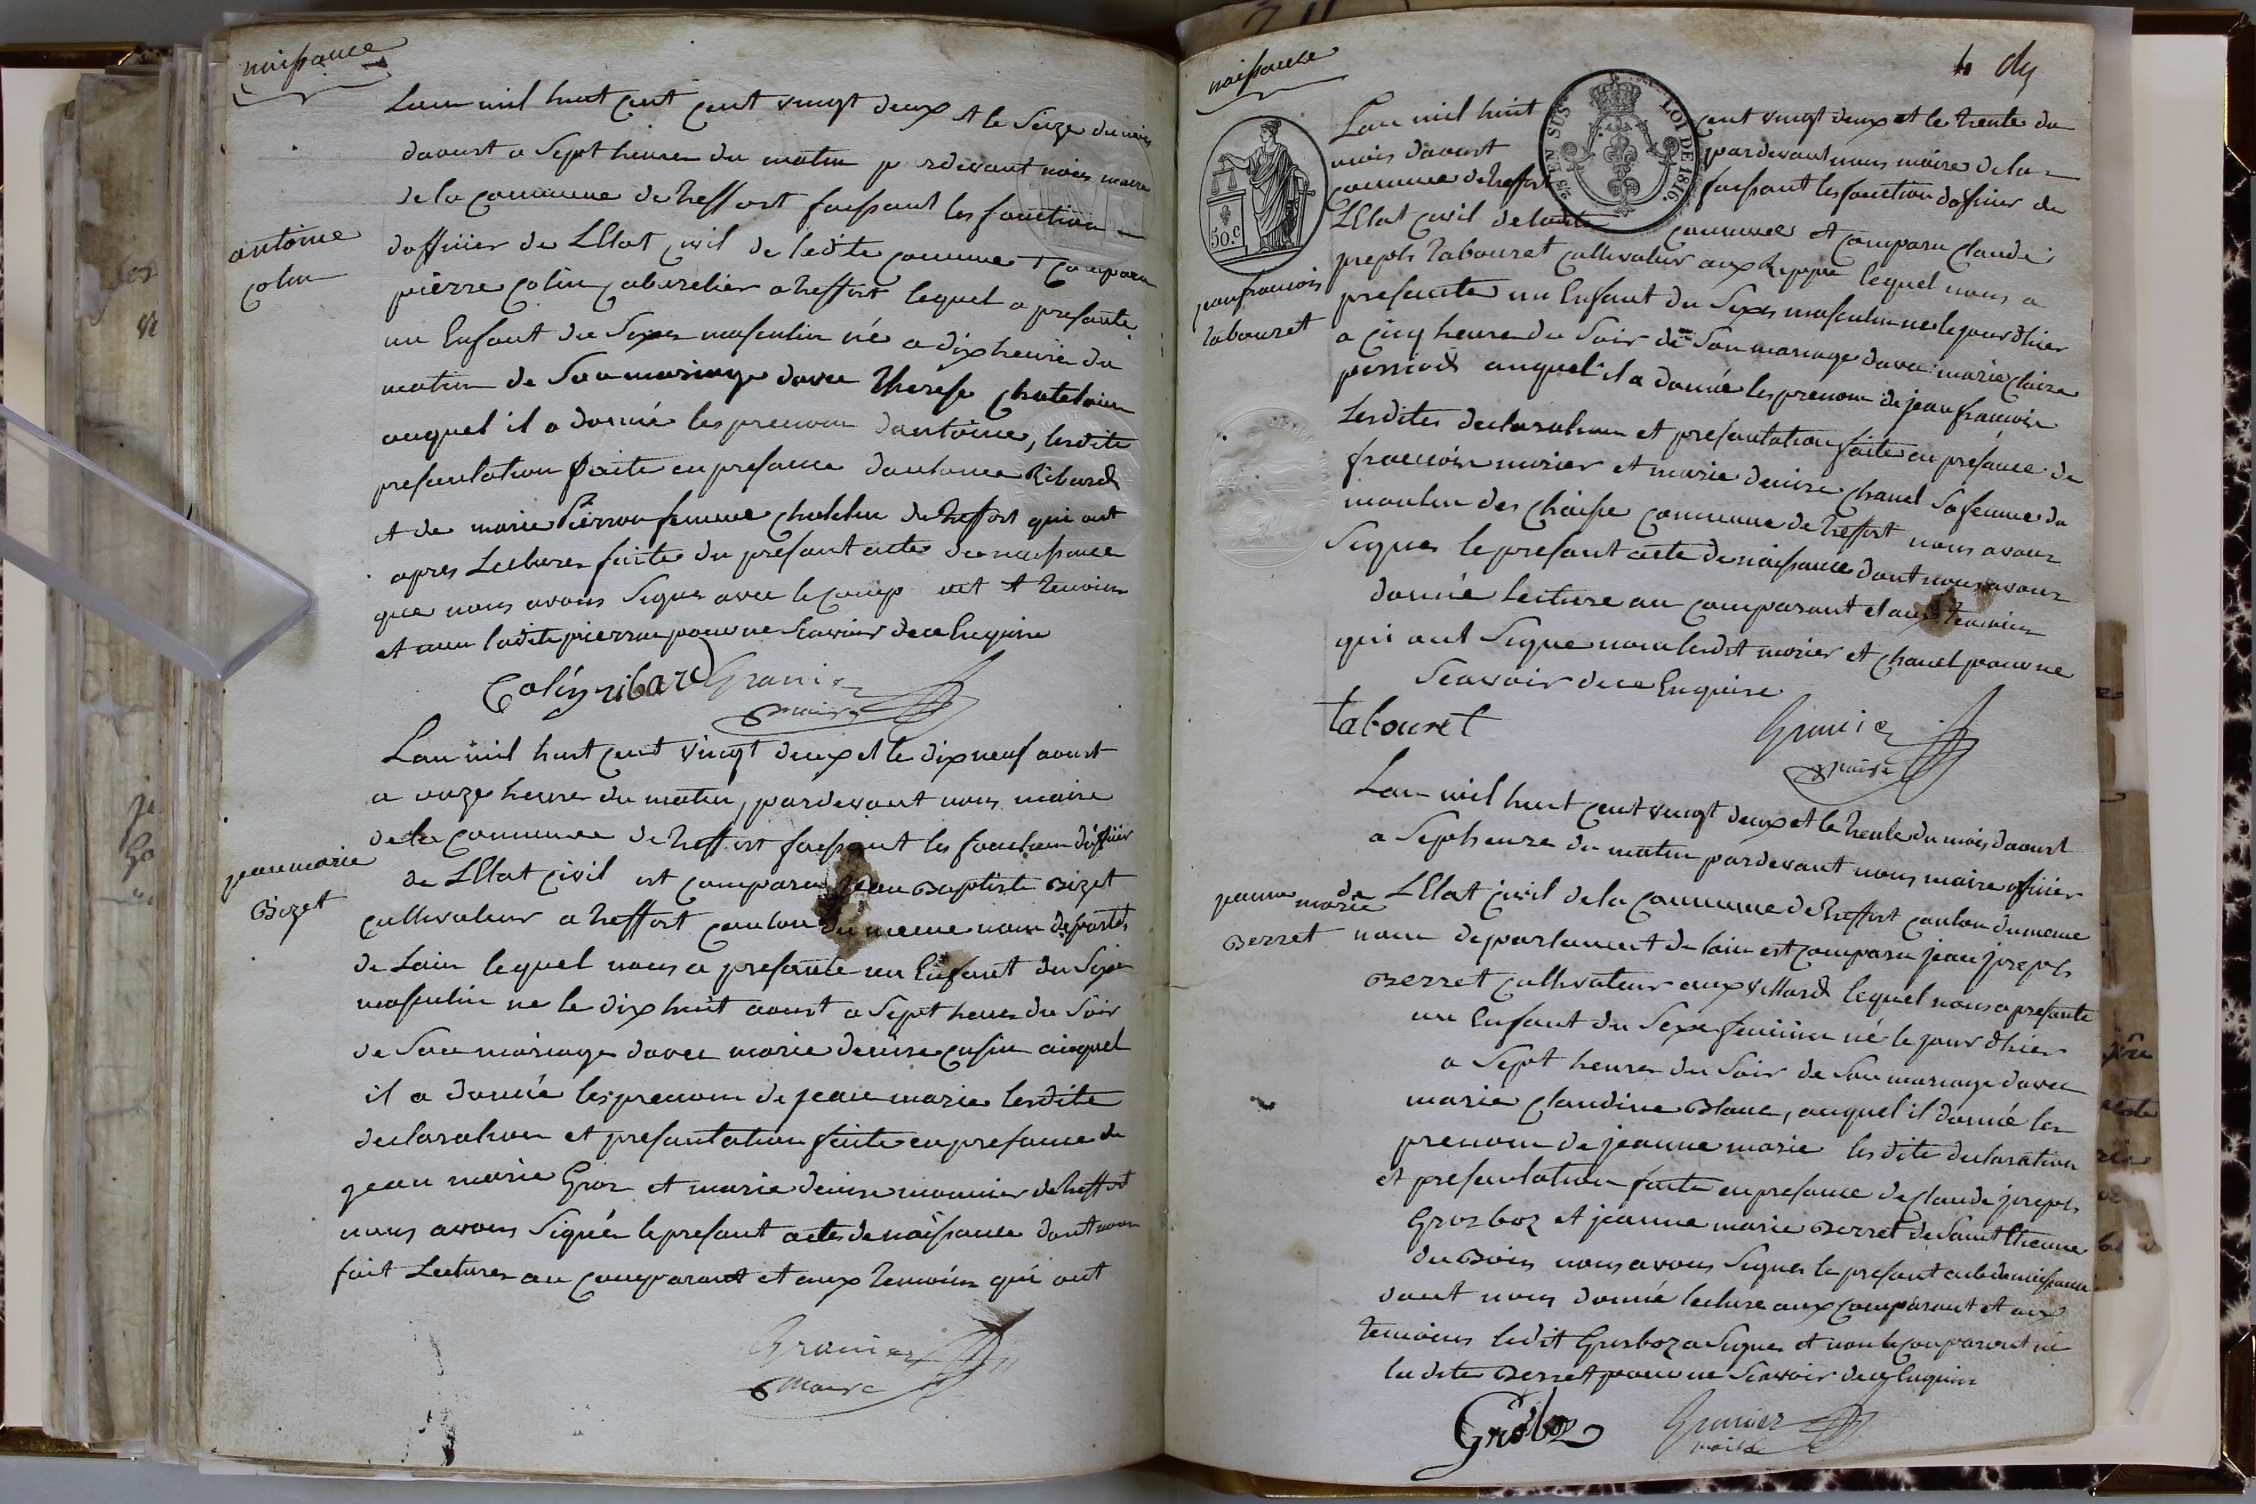 naissance
Lan mil huit cent cent vingt deux et le Seize du mois
daoust a Sept heures du matin pardevant nous maire
de la commune de treffort faissant les fonction
dofficier de LEtat civil de ladite commune est comparu
pierre colin cabaretier a treffort lequel a presanté
antoine
colin
un Enfant du Sexes masculin né a dix heure du
matin de Son mariage davec therese chatelain
auquel il a donné les prenom dantoine, lesdite
presantation faite en presance dantoine Ribard
et de marie Pierron femme chatelin de treffort qui ont
apres Lectures faite du presant acte de naissance
que nous avons Signer avec le comp ant et temoin
et non ladite pierron pour ne Scavoir de ce Enquire
Colin ribard Granier
maire
Lan mil huit cent vingt deux et le dix neuf aoust
a onze heures du matin, pardevant nous maire
de la commune de treffort faissant les fonction dofficier
jean marie
Bizet
de LEtat civil est comparu jean Baptiste Bizet
cultivateur a treffort canton du meme nom depart.t
de Lain lequel nous a presante un Enfant du Sexe
masculin ne le dix huit aoust a Sept heures du Soir
de Son mariage davec marie denise cusin auquel
il a donné les prenom de jean marie lesdite
declaration et presantation faite en presance de
jean marie Gros et marie denise monnier de treffort
nous avons Signér le presant actes de naissance dont nous
fait Lectures au comparant et aux temoins qui ont
Granier
maire
naissance
LOI DE 1816.
EN SUS
50.c
Lan mil huit cent vingt deux et le trente du
mois daoust pardevant nous maire de la
commune de treffort faissant les fonction dofficier de
LEtat civil de ladite commune est comparu claude
jean francois
tabouret
joseph tabouret cultivateur aux Reppe lequel nous a
presante un Enfant du Sexes masculin ne le jour dhier
a cinq heures du Soir de Son mariage davec marie claire
perriod auquel il a donné les prenom de jean francois
Lesdites declaration et presantation faite en presance de
francois morier et marie denise chanel Sa femme du
moulin des chaisse commune de treffort nous avons
Signer le presant acte de naissance dont nous avons
donné lecture au comparant et aux temoin
qui ont Signe non lesdit morier et chanel pour ne
Scavoir de ce Enquire
tabouret Granier
maire
Lan mil huit cent vingt deux et le trente du mois daoust
a Sept heures du matin pardevant nous maire officier
jeanne marie
Berret
de LEtat civil de la commune de treffort canton du meme
nom departement de lain est comparu jean joseph
Berret cultivateur aux villard lequel nous a presante
un Enfant du Sexe feminin né le jour dhier
a Sept heures du Soir de Son mariage davec
marie claudine Blanc, auquel il donné les
prenom de jeanne marie lesdite declaration
et presantation faite en presance de claude joseph
Grosboz et jeanne marie Berret de Saint Etienne
du Bois nous avons Signer le presant acte de naissance
dont nous donné lecture aux comparant et aux
temoins ledit Grosboz a Signer et non le comparant ni
ladite Berret pour ne Scavoir de ce Enquire
Grosboz Granier
maire